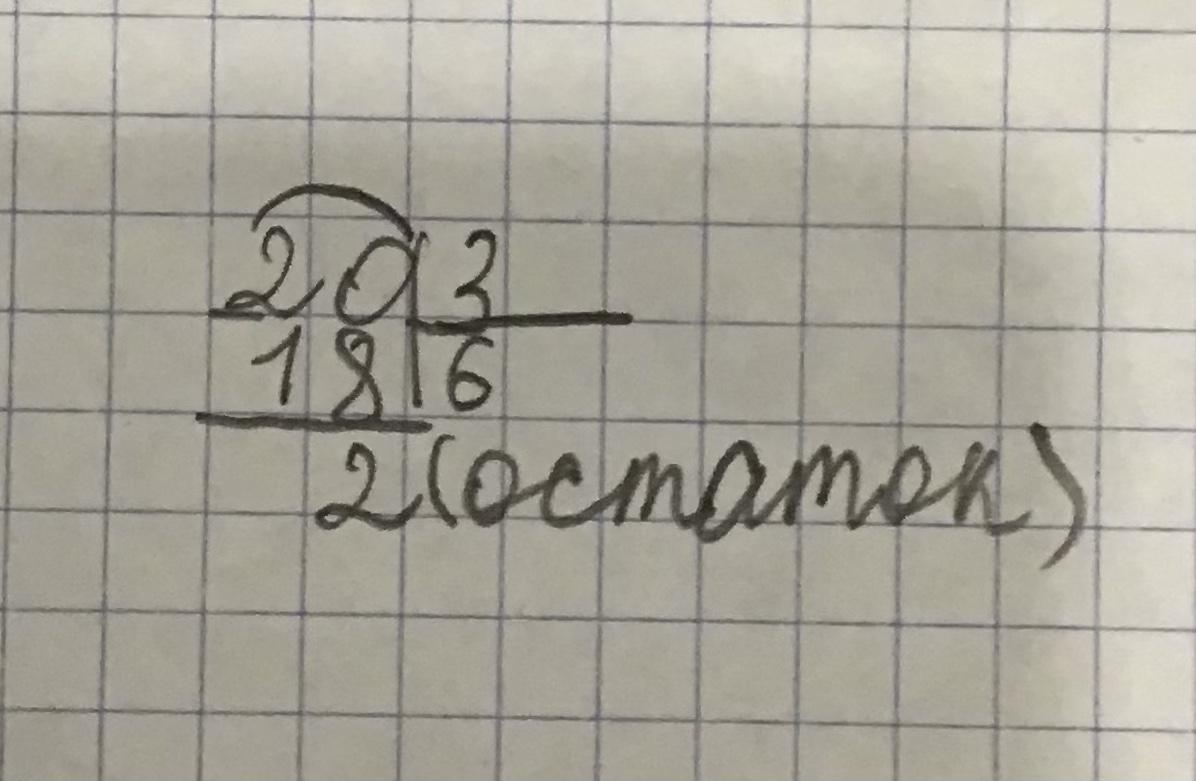 20 3
18 6
2 (остаток)